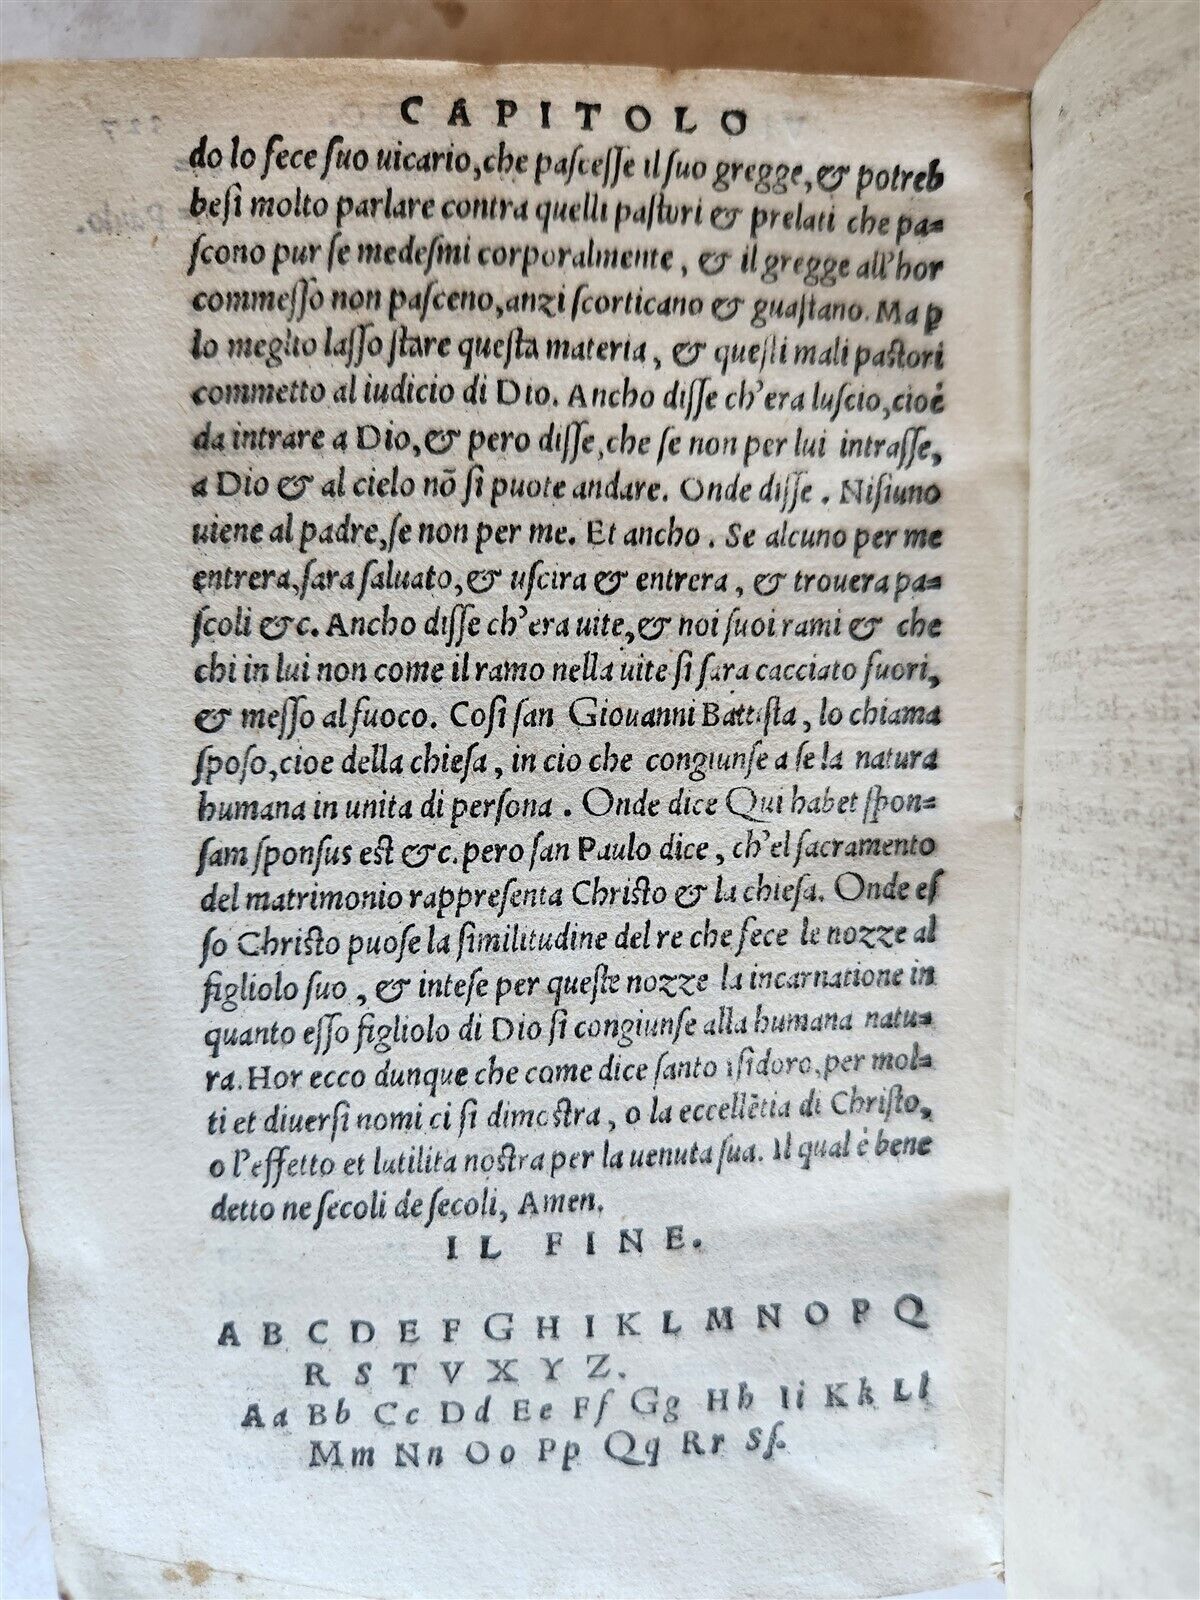 CAPITOLO
do lo fece ſuo uicario, che paſceſſe il ſuo gregge, & potreb
beſi molto parlare contra quelli paſtori & prelati che pa=
ſcono pur ſe medeſmi corporalmente, & il gregge all'hor
commeſſo non paſceno, anzi ſcorticano & guaſtano. Ma ꝑ
lo meglio laſſo ſtare queſta materia, & queſti mali paſtori
commetto al iudicio di Dio. Ancho diſſe ch'era luſcio, cioè
da intrare a Dio, & pero diſſe, che ſe non per lui intraſſe,
a Dio & al cielo nō ſi puote andare. Onde diſſe. Niſiuno
uiene al padre, ſe non per me. Et ancho. Se alcuno per me
entrera, ſara ſaluato, & uſcira & entrera, & trouera pa=
ſcoli &c. Ancho diſſe ch'era uite, & noi ſuoi rami & che
chi in lui non come il ramo nella uite ſi ſara cacciato fuori,
& meſſo al fuoco. Coſi ſan Giouanni Battiſta, lo chiama
ſpoſo, cioe della chieſa, in cio che congiunſe a ſe la natura
humana in unita di perſona. Onde dice Qui habet ſpon=
ſam ſponſus eſt &c. pero ſan Paulo dice, ch'el ſacramento
del matrimonio rappreſenta Chriſto & la chieſa. Onde eſ
ſo Chriſto puoſe la ſimilitudine del re che fece le nozze al
figliolo ſuo, & inteſe per queſte nozze la incarnatione in
quanto eſſo figliolo di Dio ſi congiunſe alla humana natu=
ra. Hor ecco dunque che come dice ſanto Iſidoro, per mol=
ti et diuerſi nomi ci ſi dimoſtra, o la eccellētia di Chriſto,
o l'effetto et lutilita noſtra per la uenuta ſua. Il qual è bene
detto ne ſecoli de ſecoli, Amen.
IL FINE.
A B C D E F G H I K L M N O P Q
R S T V X Y Z.
Aa Bb Cc Dd Ee Ff Gg Hh Ii Kk Ll
Mm Nn Oo Pp Qq Rr Sſ.